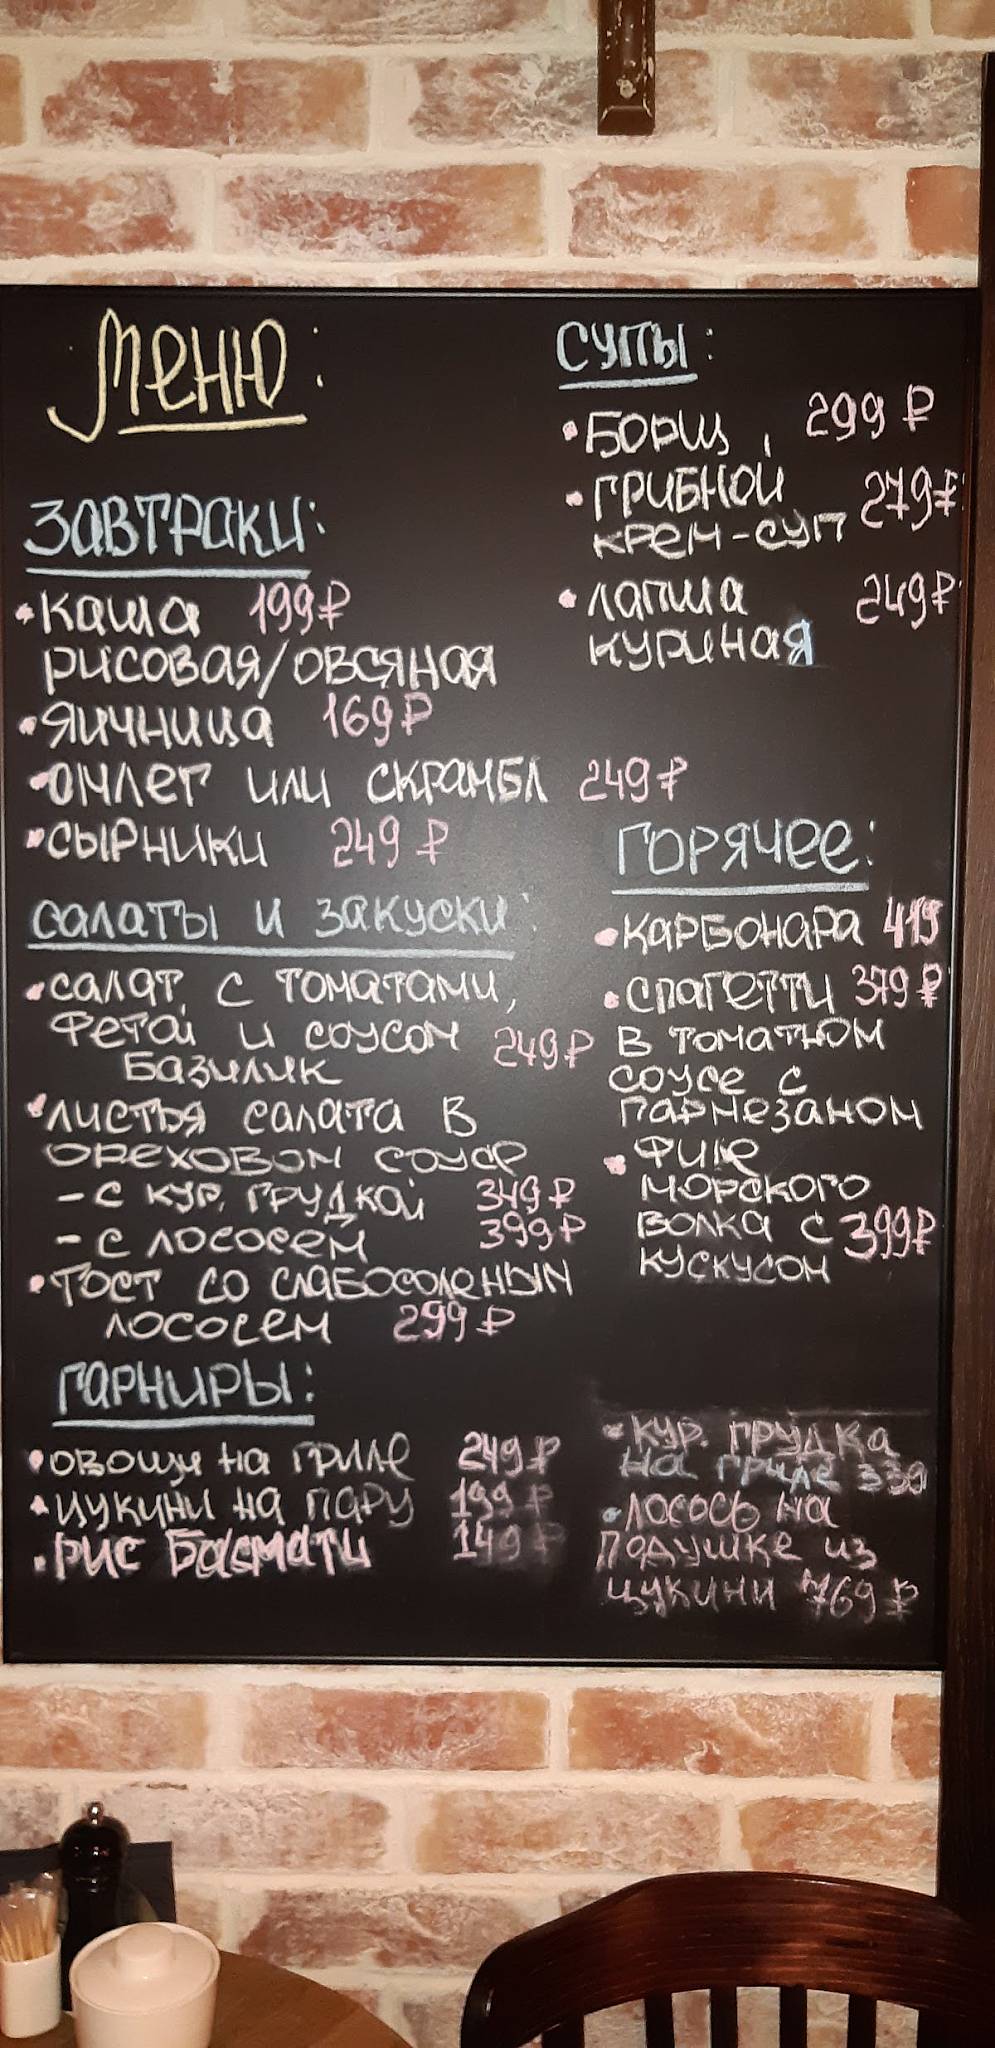 Меню:
Завтраки:
• Каша 199₽
рисовая/овсяная
• Яичница 169₽
• Омлет или скрамбл 249₽
• Сырники 249₽
Салаты и закуски:
• Салат с томатами,
фетой и соусом 249₽
базилик
• Листья салата в
ореховом соусе
- с кур. грудкой 349₽
- с лососем 399₽
• Тост со слабосоленым
лососем 299₽
Гарниры:
• Овощи на гриле 249₽
• Цукини на пару 199₽
• Рис Басмати 149₽
Супы:
• Борщ 299₽
• Грибной 279₽
крем-суп
• Лапша 249₽
куриная
Горячее:
• Карбонара 419
• Спагетти 379₽
в томатном
соусе с
пармезаном
• Филе
морского
волка с 399₽
кускусом
• Кур. грудка
на гриле 339
• Лосось на
подушке из
цукини 769₽